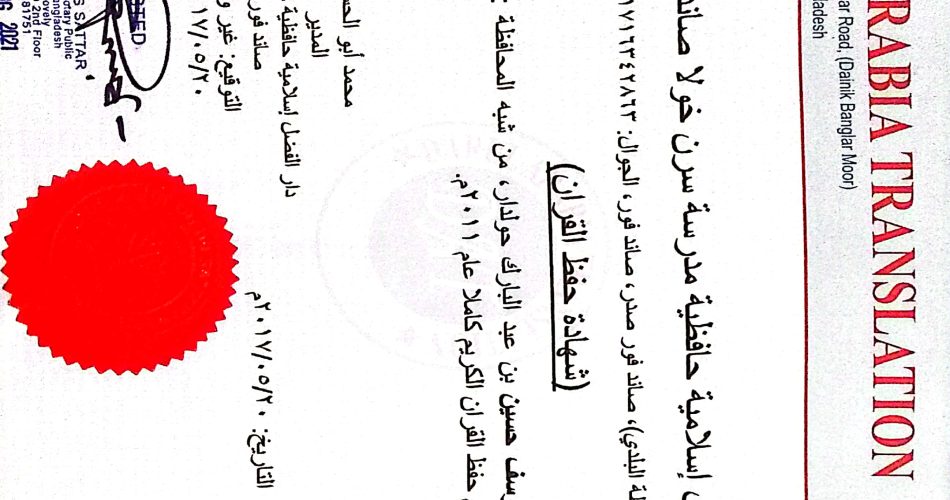 RABIA TRANSLATION
ar Road, (Dainik Banglar Moor)
ladesh
إسلامية حافظية مدرسة سرن خولا صاند
لة البلدي)، صاند فور صدر، صاند فور، الجوال: ١٧١٦٣٤٢٨٦٣
(شهادة حفظ القران)
وسف حسين بن عبد البارك حولدار، من شبه المحافظة :
حفظ القران الكريم كاملا عام ٢٠١١م.
محمد أبو الحس
المدير
دار الفضل إسلامية حافظية
صاند فور
التوقيع: غير و
١٧/٠٥/٢٠
التاريخ: ٢٠١٧/٠٥/٢٠م
TED
S SATTAR
otary Public
angladesh
ovely
2nd Floor
81751
2021